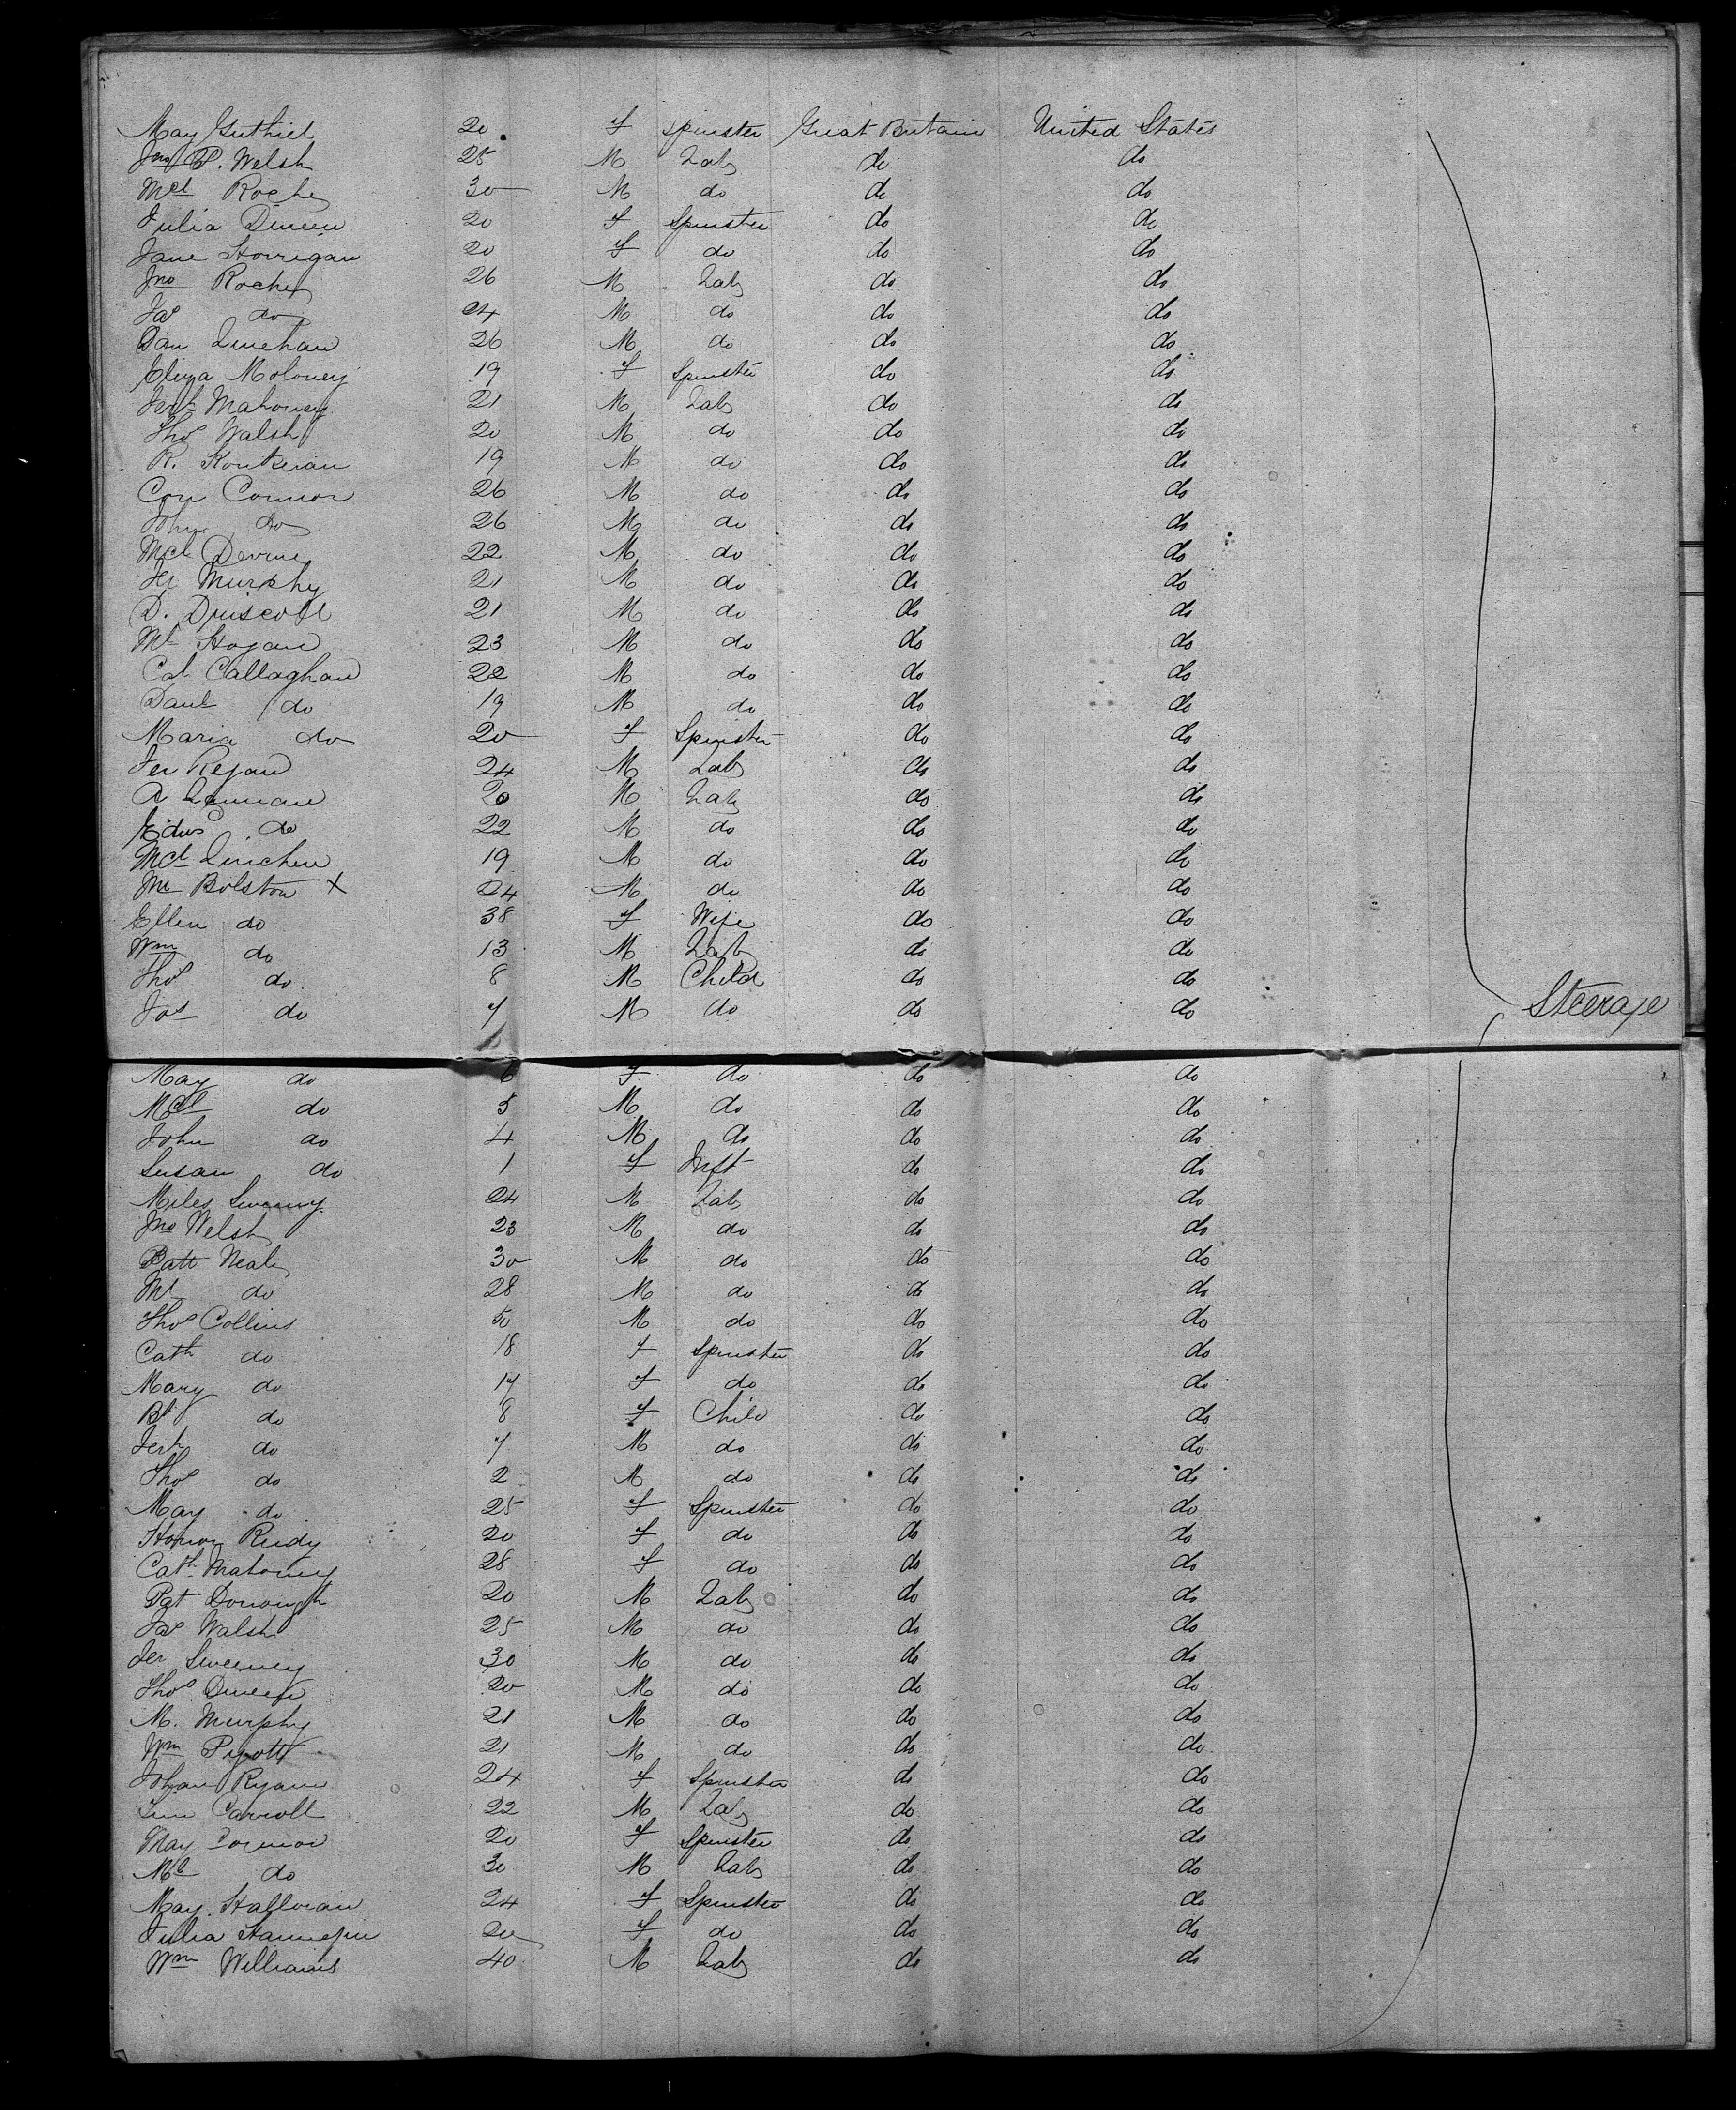 May Guthiel 20 F Spinster Great Britain United States
Jno P. Welsh 25 M Lab do do
Mcl Roche 30 M do do do
Julia Dineen 20 F Spinster do do
Jane Horrigan 20 F do do do
Jno Roche 26 M Lab do do
Jas do 24 M do do do
Dan Linehan 26 M do do do
Eliza Moloney 19 F Spinster do do
Jerh Mahoney 21 M Lab do do
Thos Walsh 20 M do do do
R. 19 M do do do
Con Connor 26 M do do do
John do 26 M do do do
Mcl Devine 22 M do do do
Jer Murphy 21 M do do do
D. Driscoll 21 M do do do
Ml Hogan 23 M do do do
Cal Callaghan 22 M do do do
Danl do 19 M do do do
Maria do 20 F Spinster do do
Jer Regan 24 M Lab do do
A 20 M Lab do do
Edwd do 22 M do do do
Mcl Linehen 19 M do do do
Jno Bolston X 24 M do do do
Ellen do 38 F Wife do do
Wm do 13 M Lab do do
Thos do 8 M Child do do
Jas do 7 M do do do
Steerage
May do 6 F do do do
Mcl do 5 M do do do
John do 4 M do do do
Susan do 1 F Inft do do
Miles Sweeny 24 M Lab do do
Jno Welsh 23 M do do do
Patt Neale 30 M do do do
Ml do 28 M do do do
Thos Collins 50 M do do do
Cath do 18 F Spinster do do
Mary do 17 F do do do
Bt do 8 F Child do do
Jerh do 7 M do do do
Thos do 2 M do do do
May do 25 F Spinster do do
Honor Reidy 20 F do do do
Cath Mahoney 28 F do do do
Pat Donough 20 M Lab do do
Jas Walsh 25 M do do do
Jer Sweeney 30 M do do do
Thos Dineen 20 M do do do
M. Murphy 21 M do do do
Wm Pigott 21 M do do do
Johan Ryan 24 F Spinster do do
Tim Carroll 22 M Lab do do
May Connor 20 F Spinster do do
Ml do 30 M Lab do do
May Halloran 24 F Spinster do do
Julia Hannefin 20 F do do do
Wm Williams 40 M Lab do do